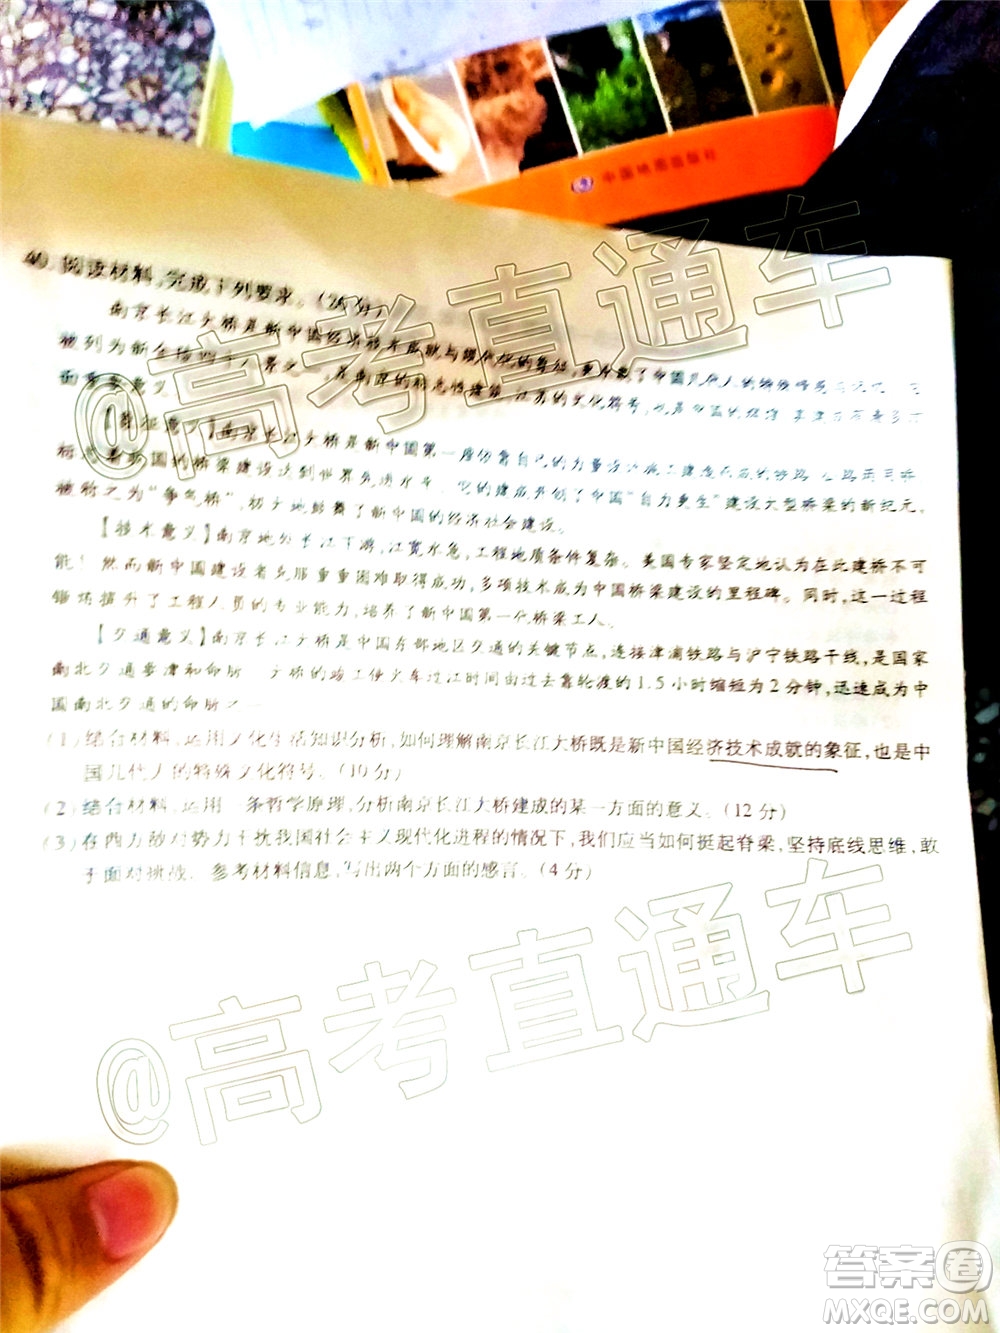 中国地图出版社
40. 阅读材料,完成下列要求。(26分)
南京长江大桥是新中国经济技术成就与现代化的象征,
被列为新金陵四十八景之一,是南京的标志性建筑、江苏的文化符号,
【象征意义】南京长江大桥是新中国第一座依靠自己的力量设计施工建造而成的铁路、公路两用桥,
标志着我国的桥梁建设达到世界先进水平。它的建成开创了中国“自力更生”建设大型桥梁的新纪元,
被称之为“争气桥”,极大地鼓舞了新中国的经济社会建设。
【技术意义】南京地处长江下游,江宽水急,工程地质条件复杂。美国专家坚定地认为在此建桥不可
能!然而新中国建设者克服重重困难取得成功,多项技术成为中国桥梁建设的里程碑。同时,这一过程
锻炼提升了工程人员的专业能力,培养了新中国第一代桥梁工人。
【交通意义】南京长江大桥是中国东部地区交通的关键节点,连接津浦铁路与沪宁铁路干线,是国家
南北交通要津和命脉 大桥的竣工使火车过江时间由过去靠轮渡的1.5小时缩短为2分钟,迅速成为中
国南北交通的命脉之一
(1)结合材料,运用文化生活知识分析,如何理解南京长江大桥既是新中国经济技术成就的象征,也是中
国几代人的特殊文化符号。(10分)
(2)结合材料,运用一条哲学原理,分析南京长江大桥建成的某一方面的意义。(12分)
(3)在西方敌对势力干扰我国社会主义现代化进程的情况下,我们应当如何挺起脊梁,坚持底线思维,敢
于面对挑战。参考材料信息,写出两个方面的感言。(4分)
@高考直通车
@高考直通车
答案卷
MXQE.COM